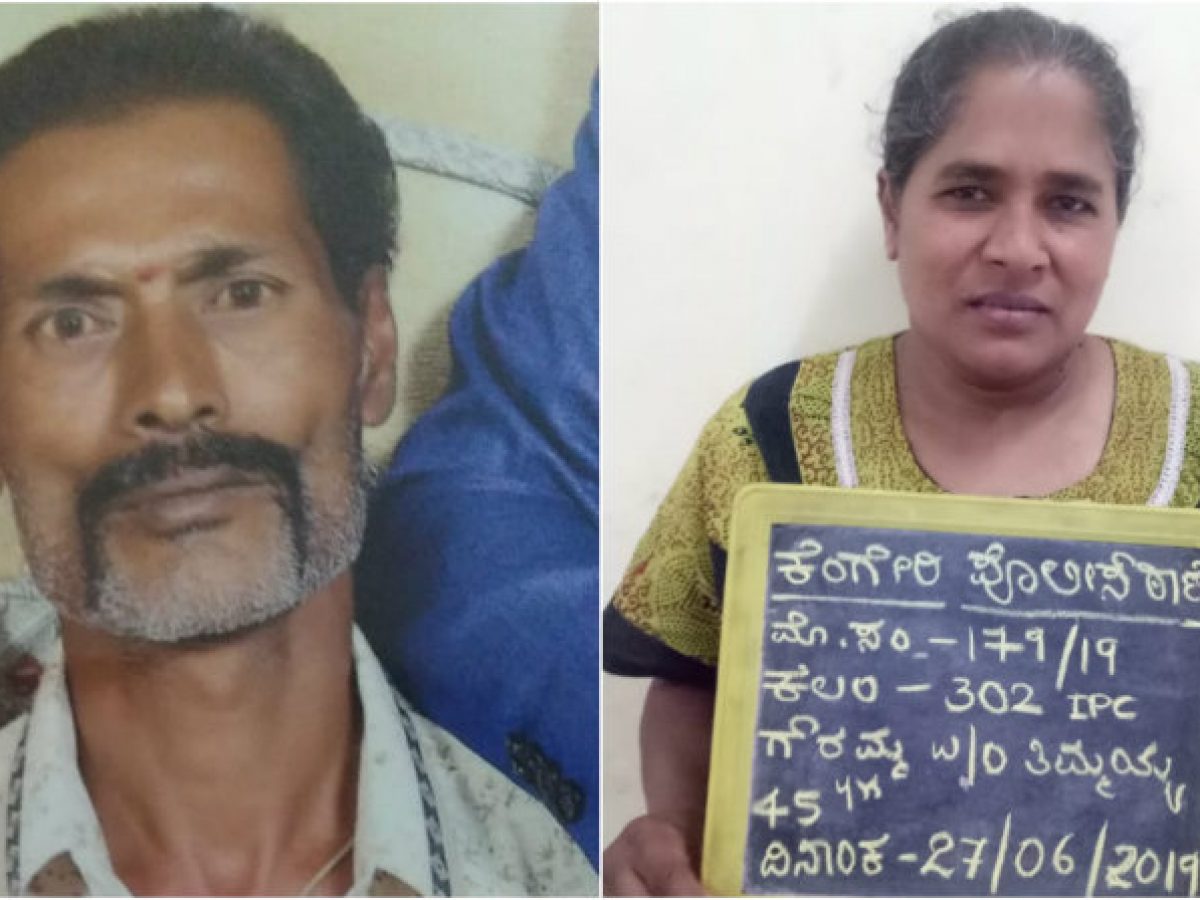 ಕೆಂಗೇರಿ ಪೊಲೀಸ್
ಮೊ.ಸಂ. - 179/19
ಕಲಂ - 302 IPC
ಗೌರಮ್ಮ W/O ತಿಮ್ಮಯ್ಯ
45 yrs
ದಿನಾಂಕ - 27/06/2019